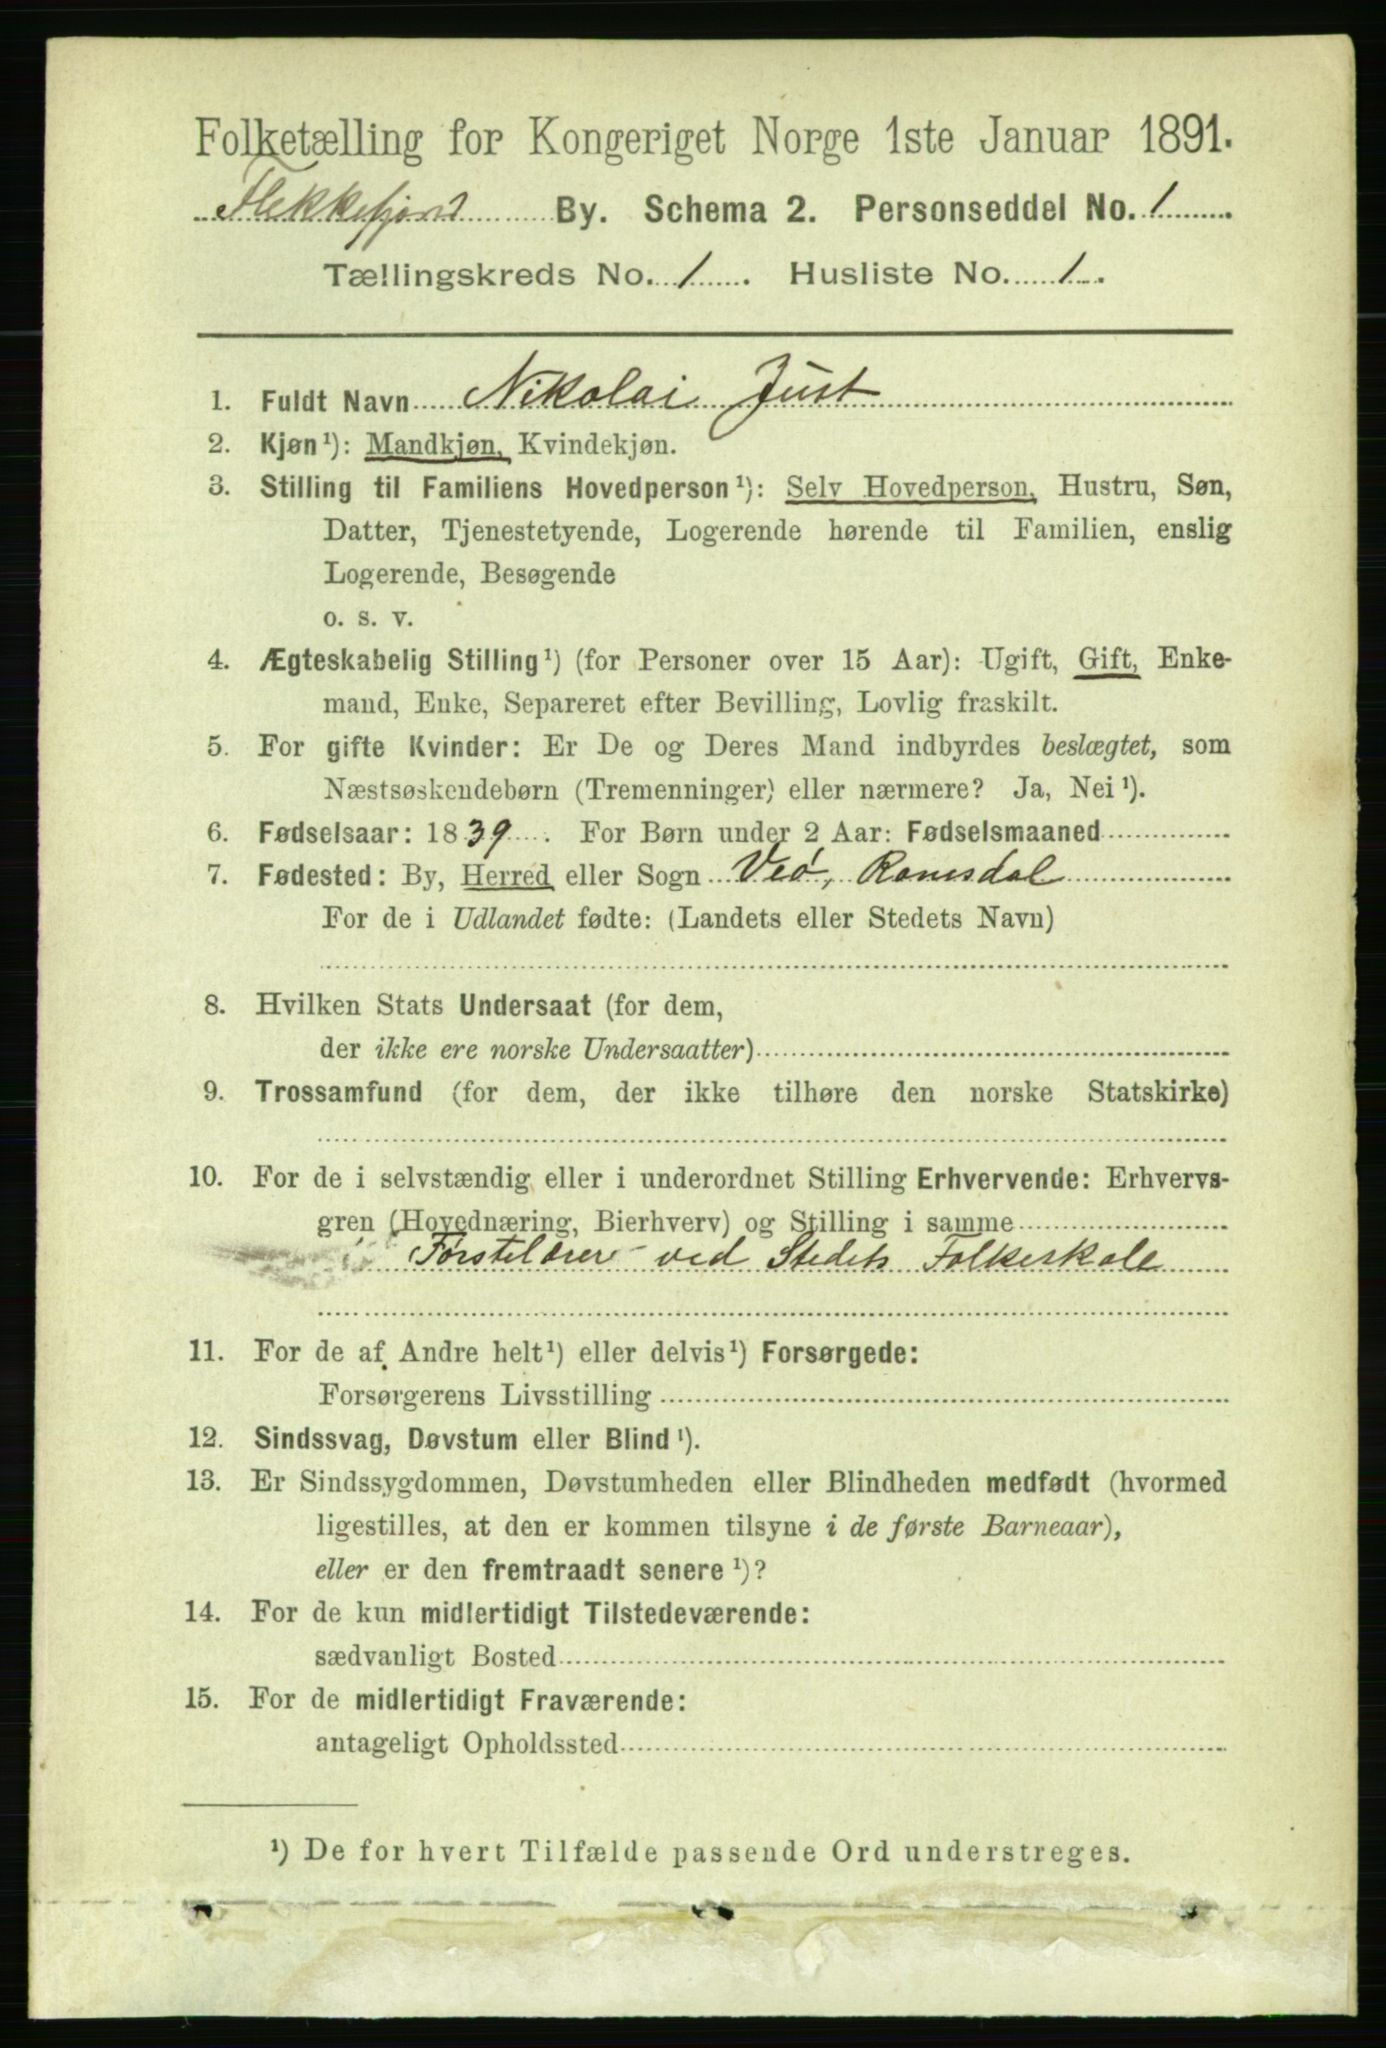 Folketælling for Kongeriget Norge 1ste Januar 1891.
Flekkefjord By. Schema 2. Personseddel No. 1.
Tællingskreds No. 1. Husliste No. 1.
1. Fuldt Navn Nikolai Just
2. Kjøn¹): Mandkjøn, Kvindekjøn.
3. Stilling til Familiens Hovedperson¹): Selv Hovedperson, Hustru, Søn,
Datter, Tjenestetyende, Logerende hørende til Familien, enslig
Logerende, Besøgende
o. s. v.
4. Ægteskabelig Stilling¹) (for Personer over 15 Aar): Ugift, Gift, Enke-
mand, Enke, Separeret efter Bevilling, Lovlig fraskilt.
5. For gifte Kvinder: Er De og Deres Mand indbyrdes beslægtet, som
Næstsøskendebørn (Tremenninger) eller nærmere? Ja, Nei¹).
6. Fødselsaar: 1839. For Børn under 2 Aar: Fødselsmaaned
7. Fødested: By, Herred eller Sogn Veø, Romsdal
For de i Udlandet fødte: (Landets eller Stedets Navn)
8. Hvilken Stats Undersaat (for dem,
der ikke ere norske Undersaatter)
9. Trossamfund (for dem, der ikke tilhøre den norske Statskirke)
10. For de i selvstændig eller i underordnet Stilling Erhvervende: Erhvervs-
gren (Hovednæring, Bierhverv) og Stilling i samme
Førstelærer ved Stedets Folkeskole
11. For de af Andre helt¹) eller delvis¹) Forsørgede:
Forsørgerens Livsstilling
12. Sindssvag, Døvstum eller Blind¹).
13. Er Sindssygdommen, Døvstumheden eller Blindheden medfødt (hvormed
ligestilles, at den er kommen tilsyne i de første Barneaar),
eller er den fremtraadt senere¹)?
14. For de kun midlertidigt Tilstedeværende:
sædvanligt Bosted
15. For de midlertidigt Fraværende:
antageligt Opholdssted
¹) De for hvert Tilfælde passende Ord understreges.